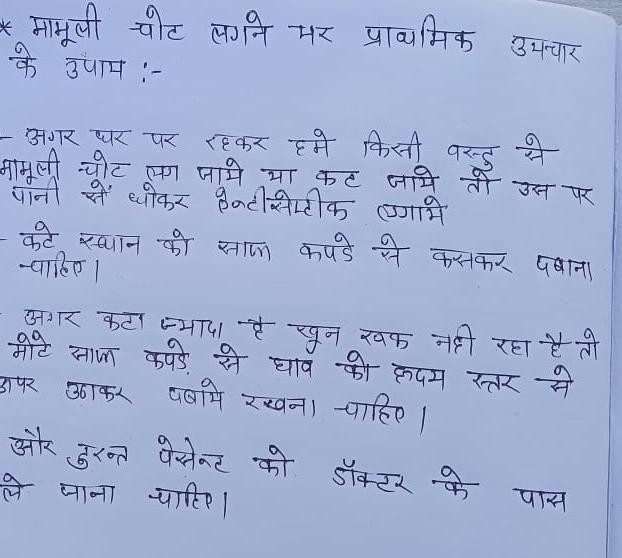 * मामूली चोट लगने पर प्राथमिक उपचार
के उपाय :-
- अगर घर पर रहकर हमे किसी वस्तु से
मामूली चोट लग जाये या कट जाये तो उस पर
पानी से धोकर ऐन्टीसेप्टीक लगाये
- कटे स्थान को साफ कपडे से कसकर दबाना
चाहिए।
- अगर कटा ज्यादा है खून रूक नही रहा है तो
मोटे साफ कपडे से घाव को हृदय स्तर से
उपर उठाकर दबाये रखना चाहिए।
और तुरन्त पेसेन्ट को डॉक्टर के पास
ले जाना चाहिए।